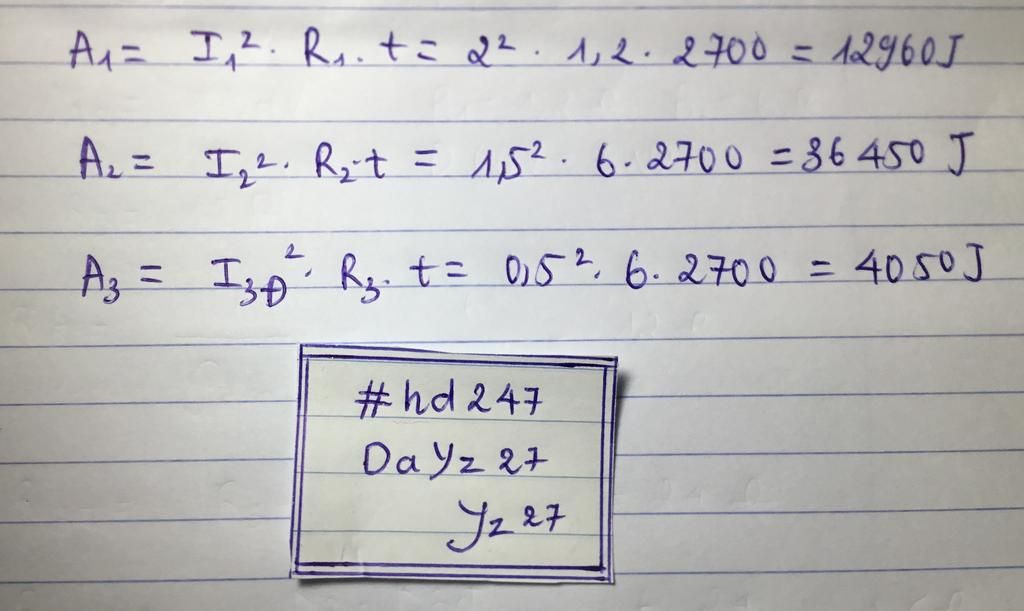 A₁ = I₁² . R₁ . t = 2² . 1,2 . 2700 = 12960J
A₂ = I₂² . R₂ . t = 1,5² . 6 . 2700 = 36 450 J
A₃ = I₃Đ² . R₃ . t = 0,5² . 6 . 2700 = 4050J
#hd247
DaYz27
Yz27